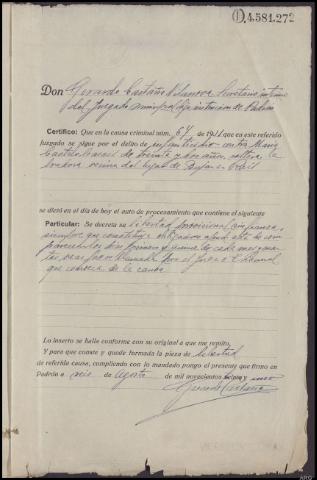 D.4.581.272
Don Gerardo Castaño Secretario interino
del Juzgado municipal de instrucción de Padrón
Certifico: Que en la causa criminal núm. 67 de 1921 que en este referido
Juzgado se sigue por el delito de infanticidio contra
de treinta y dos años, soltera,
vecina del lugar de
se dictó en el día de hoy el auto de procesamiento que contiene el siguiente
Particular: Se decreta su libertad provisional sin fianza,
siempre que constituya obligación apud acta de com-
parecer los días primero y quince de cada mes y cuan-
tas veces fuere llamada por el Juez o Tribunal
que conozca de la causa
Lo inserto se halla conforme con su original a que me remito.
Y para que conste y quede formada la pieza de libertad
de referida causa, cumpliendo lo mandado pongo el presente que firmo en
Padrón a seis de Agosto de mil novecientos veinte y uno
Gerardo Castaño
ARG